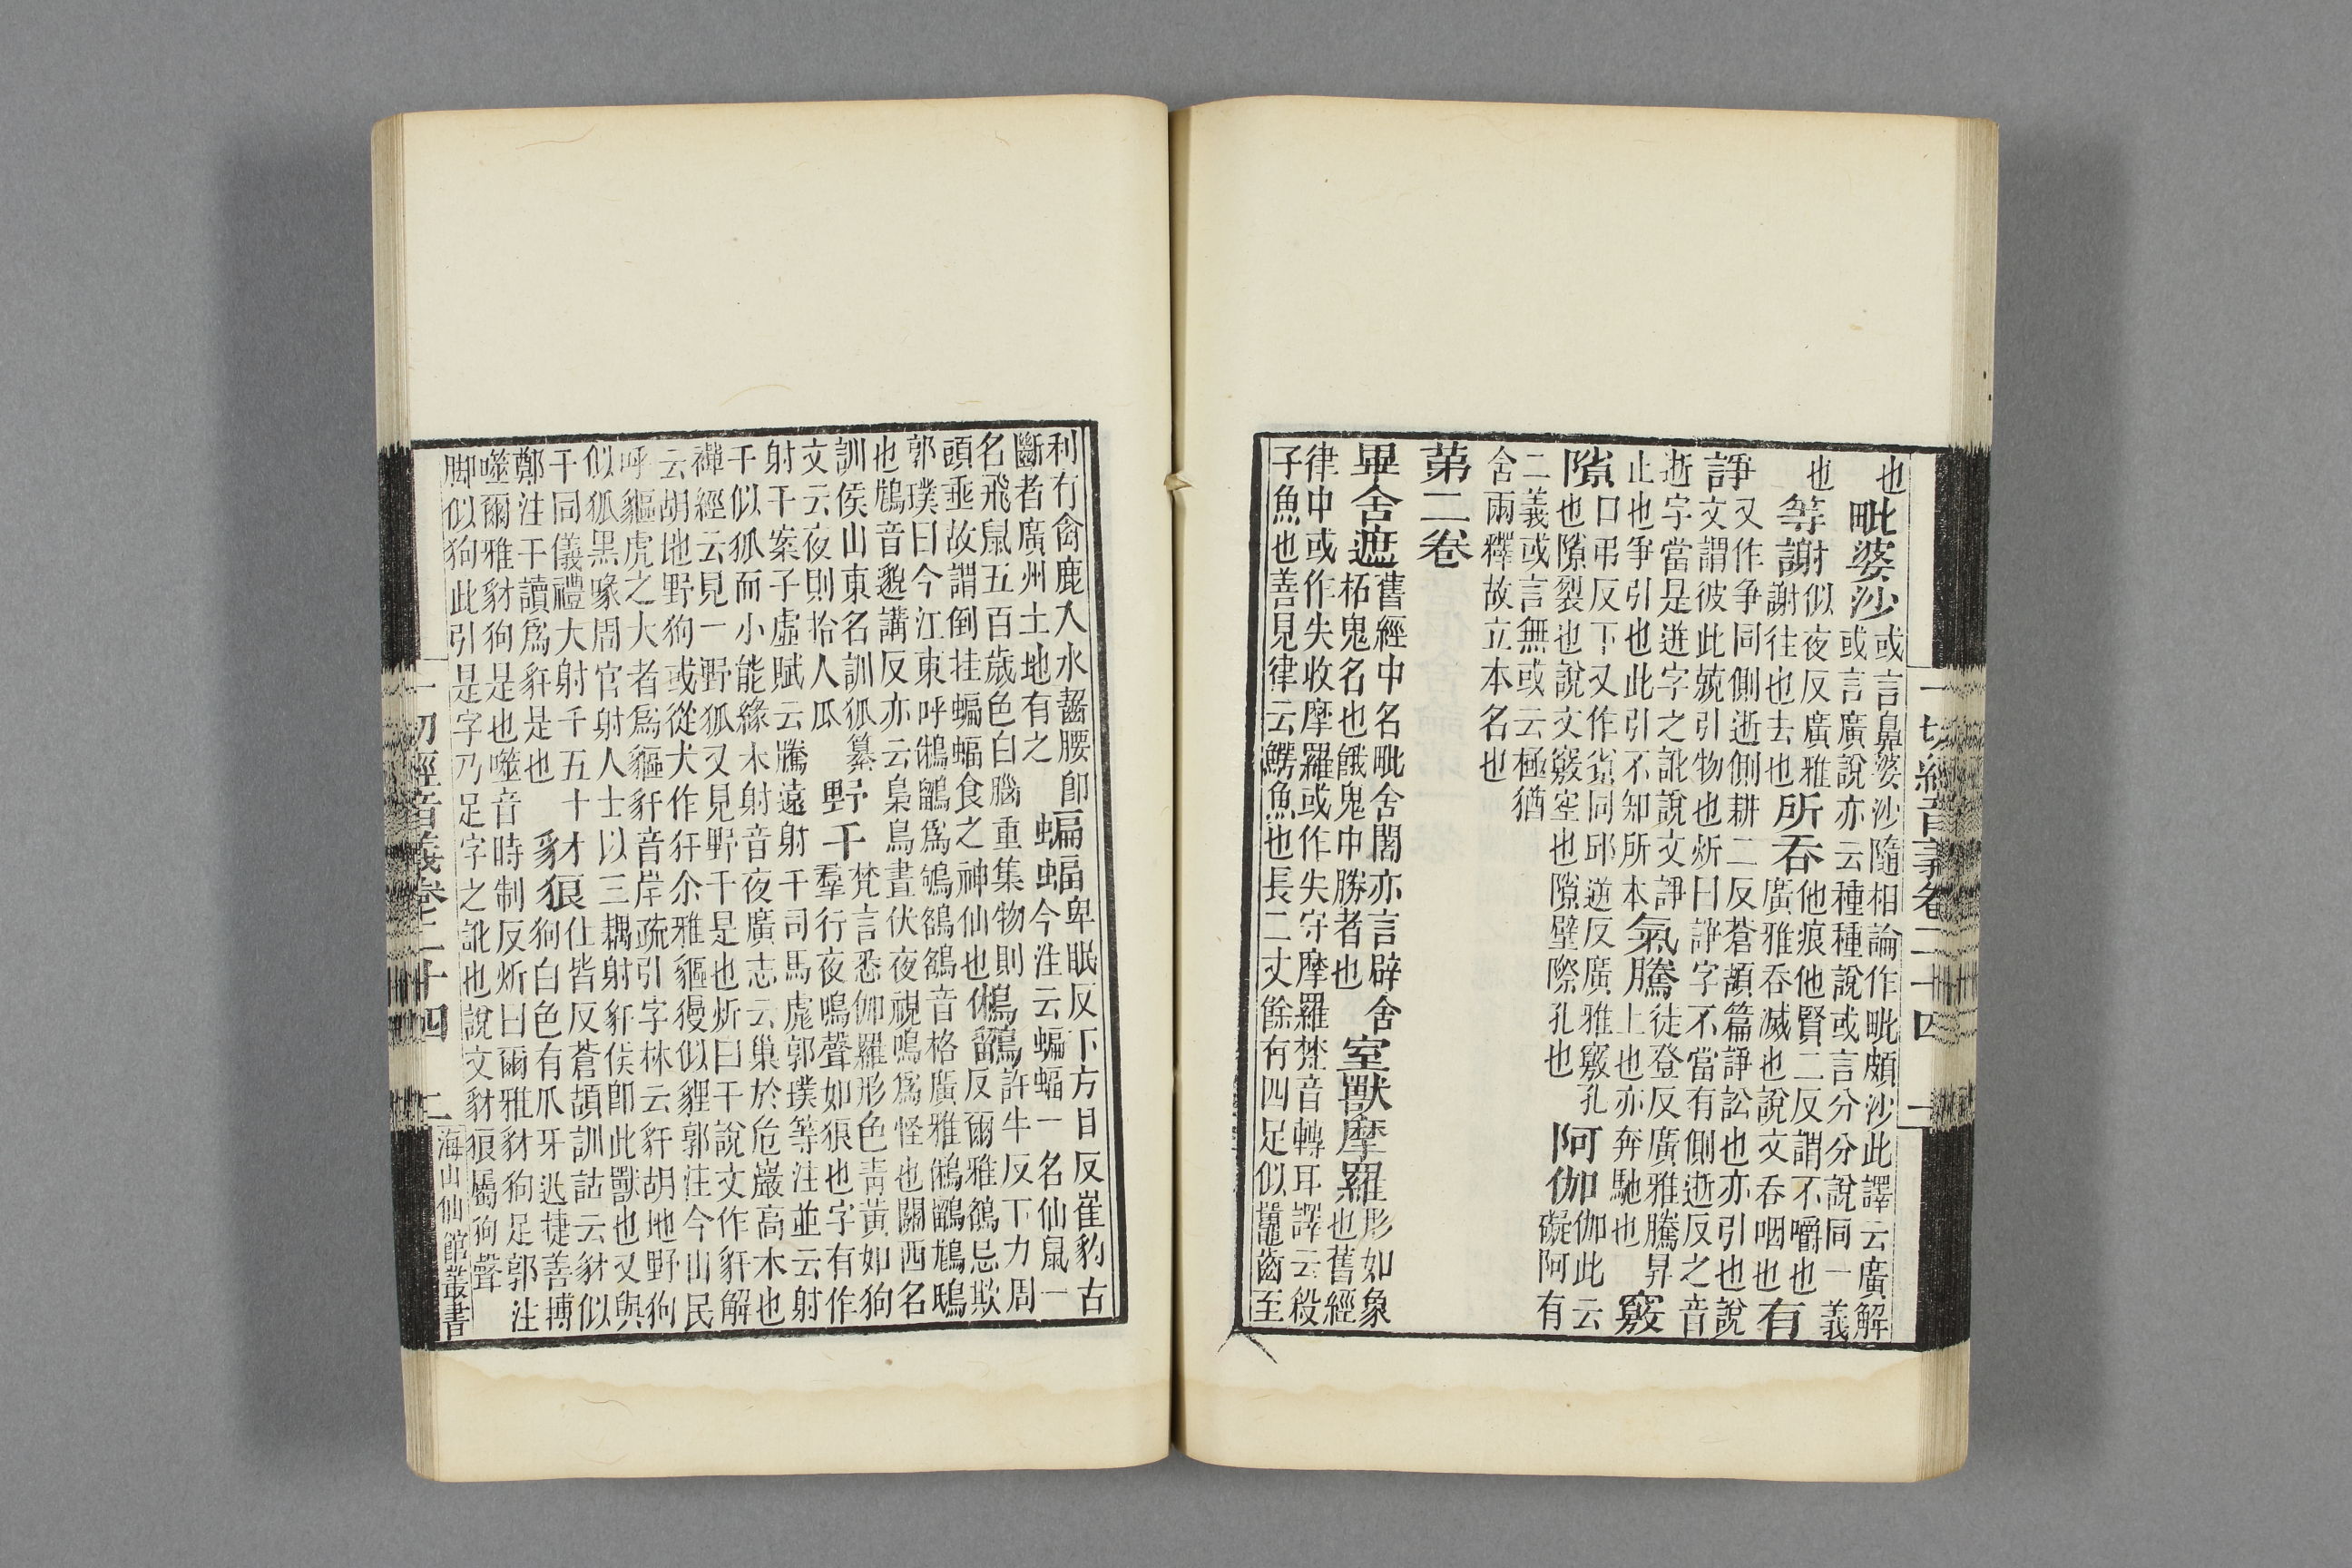 一切經音義卷二十四 二
也毗婆沙或言鼻婆沙隨相論作毗頗沙此譯云廣解
或言廣說亦云種種說或言分分說同一義
也等謝似夜反廣雅
謝往也去也所吞他痕他賢二反謂不嚼也
廣雅吞滅也說文吞咽也有
諍又作爭同側逝側耕二反蒼頡篇諍訟也亦引也說
文謂彼此競引物也炘曰諍字不當有側逝反之音
逝字當是逬字之訛說文諍
止也爭引也此引不知所本氣騰徒登反廣雅騰昇
上也亦奔馳也竅
隙口弔反下又作同邱逆反廣雅竅孔
也隙裂也說文竅空也隙壁際孔也阿伽伽此云
礙阿有
二義或言無或云極猶
舍兩釋故立本名也
第二卷
畢舍遮舊經中名毗舍闍亦言辟舍
柘鬼名也餓鬼中勝者也室獸摩羅形如象
也舊經
律中或作失收摩羅或作失守摩羅梵音轉耳譯云殺
子魚也善見律云鰐魚也長二丈餘有四足似鼉齒至
利冇禽鹿入水齧腰即
斷者廣州土地有之蝙蝠卑眠反下方目反崔豹古
今注云蝙蝠一名仙鼠一
名飛鼠五百歲色白腦重集物則
頭垂故謂倒挂蝙蝠食之神仙也鵂鶹許牛反下力周
反爾雅鵅忌欺
郭璞曰今江東呼鵂鶹爲鴝鵅鵅音格廣雅鵂鶹鴟
也音邈講反亦云梟鳥晝伏夜視鳴爲怪也關西名
訓侯山東名訓狐纂
文云夜則拾人瓜野干梵言悉伽羅形色青黃如狗
羣行夜鳴聲如狼也字有作
射干案子虛賦云騰遠射干司馬彪郭璞等注並云射
干似狐而小能緣木射音夜廣志云巢於危巖高木也
禪經云見一野狐又見野干是也炘曰干說文作豻解
云胡地野狗或從犬作犴尒雅貙獌似貍郭注今山民
呼貙虎之大者爲貙豻音岸疏引字林云豻胡地野狗
似狐黑喙周官射人士以三耦射豻侯即此獸也又與
干同儀禮大射干五十
鄭注干讀爲豻是也豺狼仕皆反蒼頡訓詁云豺似
狗白色有爪牙迅捷善搏
噬爾雅豺狗是也噬音時制反炘曰爾雅豺狗足郭注
脚似狗此引是字乃足字之訛也說文豺狼屬狗聲
一切經音義卷二十四 二 海山仙館叢書